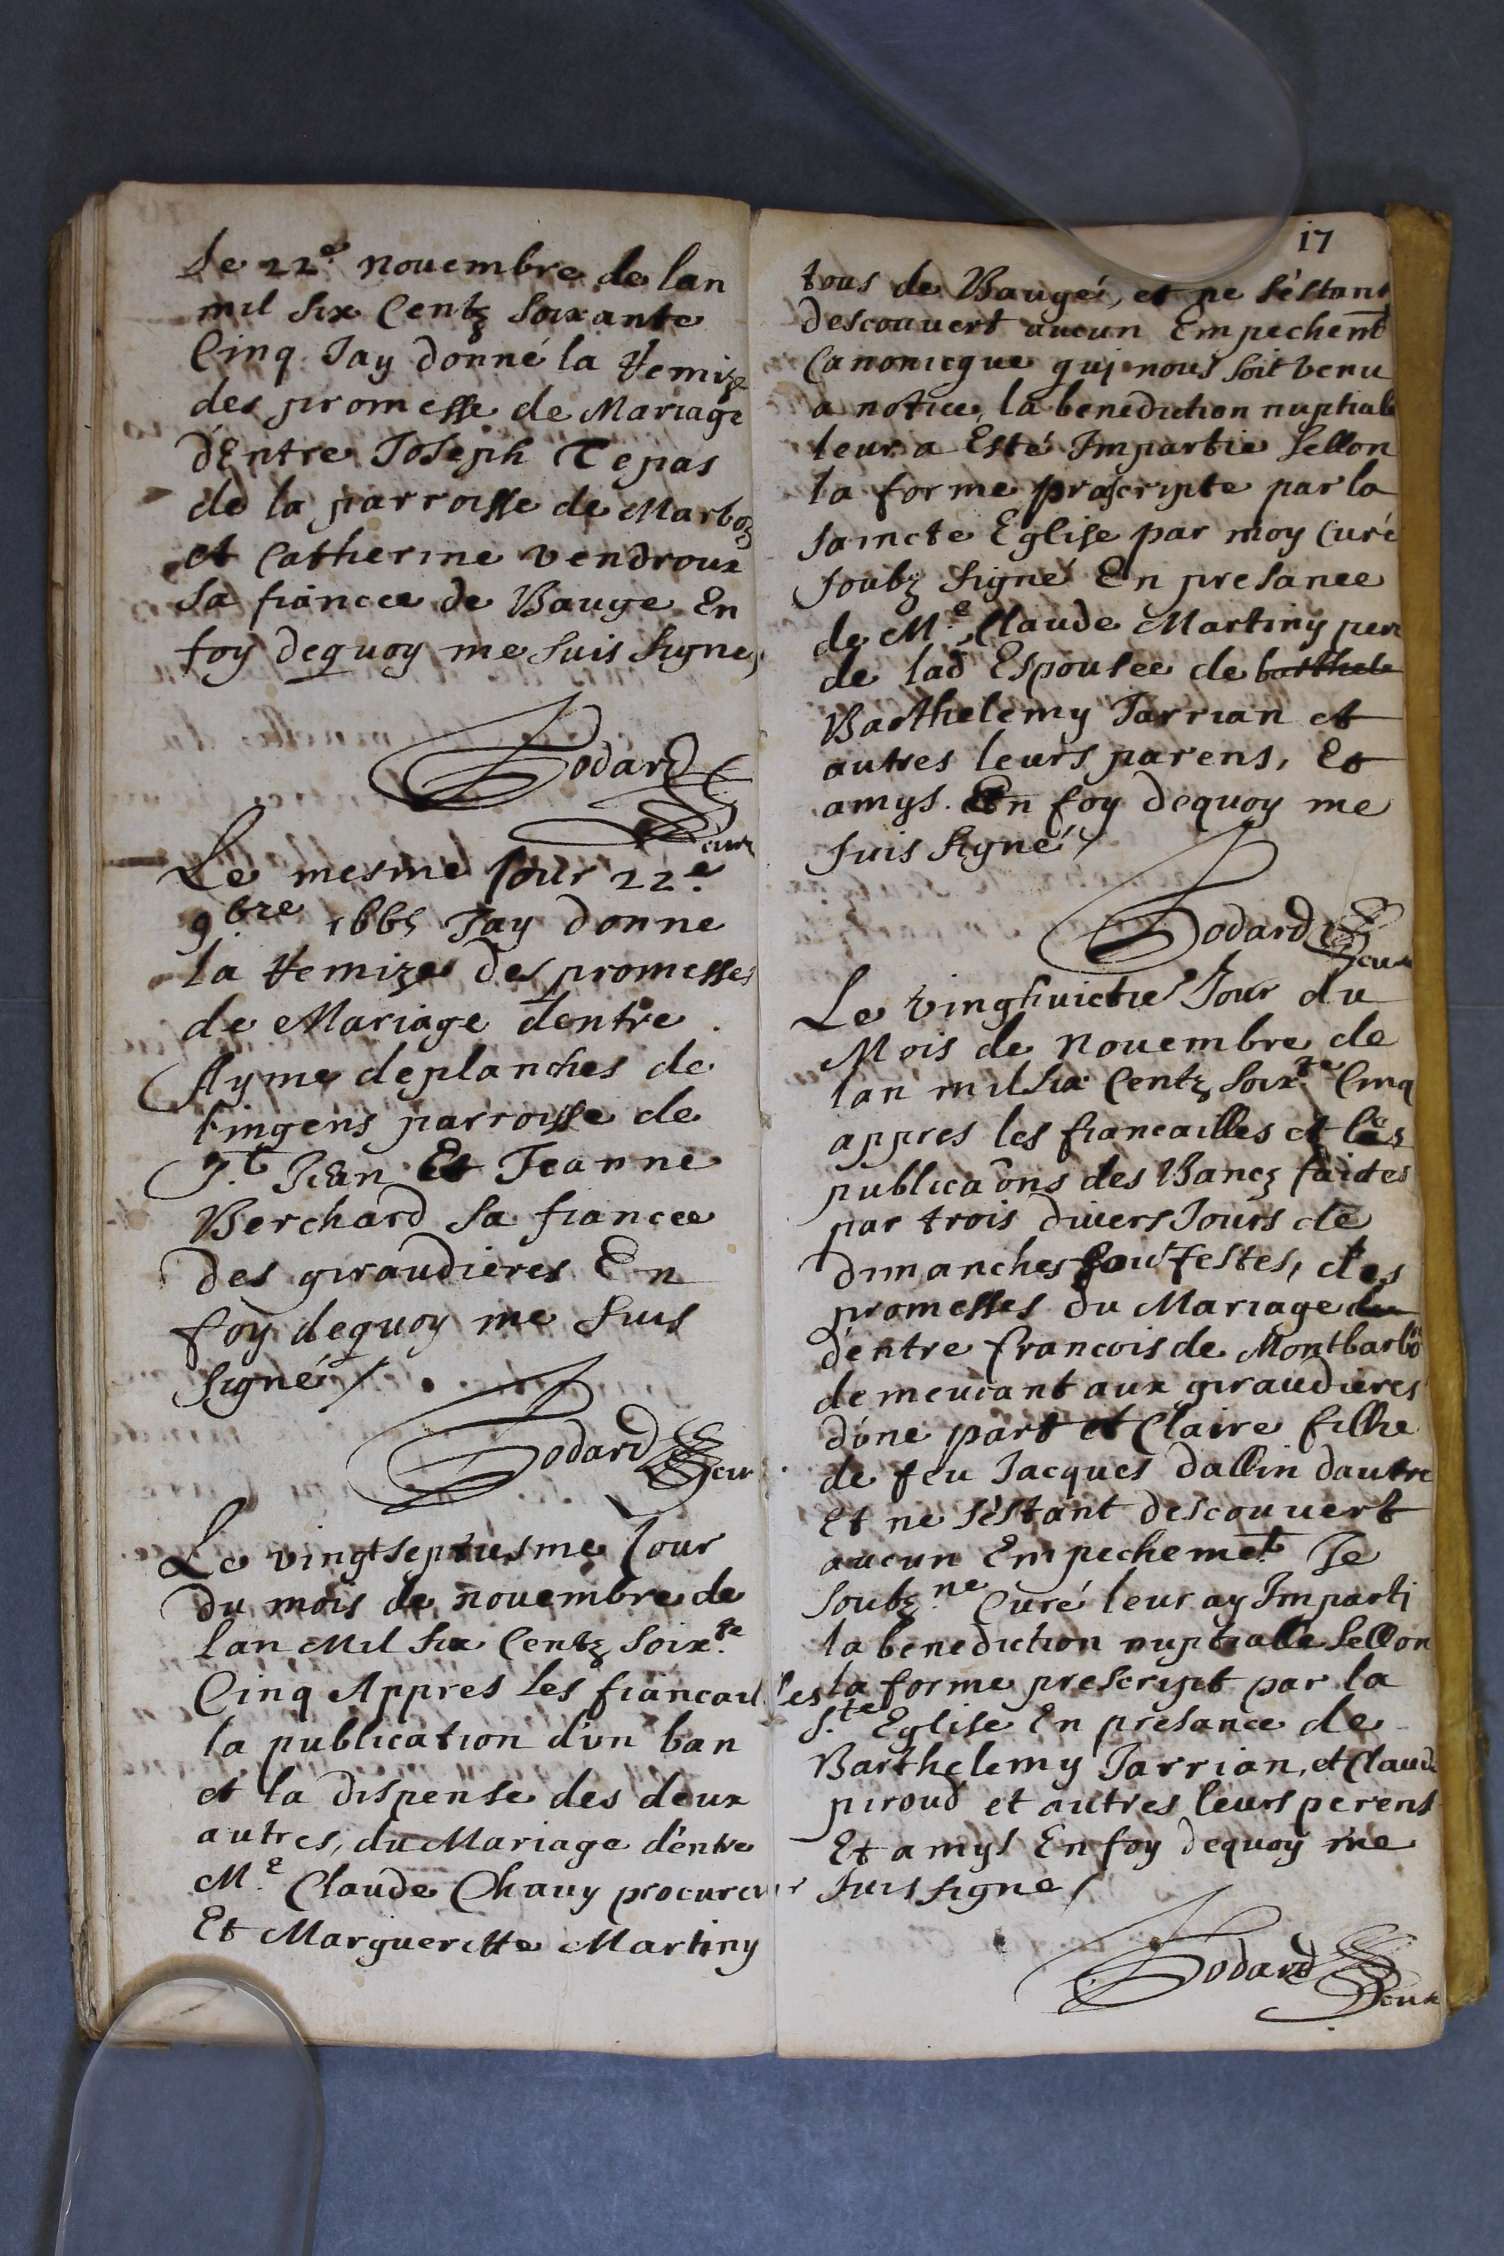 Le 22.e nouembre de lan
mil six Centz soixante
Cinq Jay donné la Remize
des promesse de Mariage
d'Entre Joseph Tepas
de la parroisse de Marboz
et Catherine vendroux
sa fiancee de Bauge En
foy dequoy me suis signe,
Godard
cur
Le mesme Jour 22.e
9.bre 1665 Jay donne
la Remize des promesses
de Mariage dentre
Ayme deplanches de
tingens parroisse de
S.t Jean Et Jeanne
Berchard sa fiancee
des giraudieres En
foy dequoy me suis
signé /.
Godard
cur
Le vingtseptiesme Jour
du mois de nouembre de
lan Mil six Centz soix.te
Cinq Appres Les fiancailles
la publication d'un ban
et la dispense des deux
autres, du Mariage d'entre
M.e Claude Chauy procureur
Et Margueritte Martiny
17
tous de Baugé, et ne s'éstant
descouuert aucun Empechent
Canonicque qui nous soit venu
a notice, la benediction nuptiale
leur a Esté Impartie sellon
la forme prascripte par la
saincte Eglise par moy Curé
soubz signé En presance
de M.e Claude Martiny pere
de lad Espousee de barthele
Barthelemy Jarrian et
autres leurs parens, Et
amys. En foy dequoy me
suis signé /
Godard
cur
Le vinghuictie Jour du
Mois de nouembre de
lan mil six Centz soix.te Cinq
appres les fiancailles et les
publicaons des Bancz faictes
par trois diuers Jours de
dimanches festes, des
promesses du Mariage du
d'entre francois de Montbarbo
demeurant aux giraudieres
d'une part et Claire fillie
de feu Jacques dallin dautre
et ne s'éstant descouuert
aucun Empechemet Je
soubz.ne Curé leur ay Imparti
la benediction nuptialle sellon
la forme prescript par la
s.te Eglise En presance de
Barthelemy Jarrian, et Claude
piroud et autres leurs perens
Et amys En foy dequoy me
suis signe /
Godard
cur